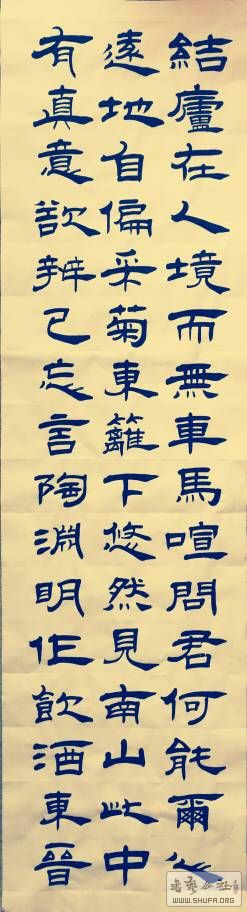 結廬在人境而無車馬喧問君何能爾心
遠地自偏采菊東籬下悠然見南山此中
有真意欲辨已忘言陶淵明作飲酒東晉
WWW.SHUFA.ORG